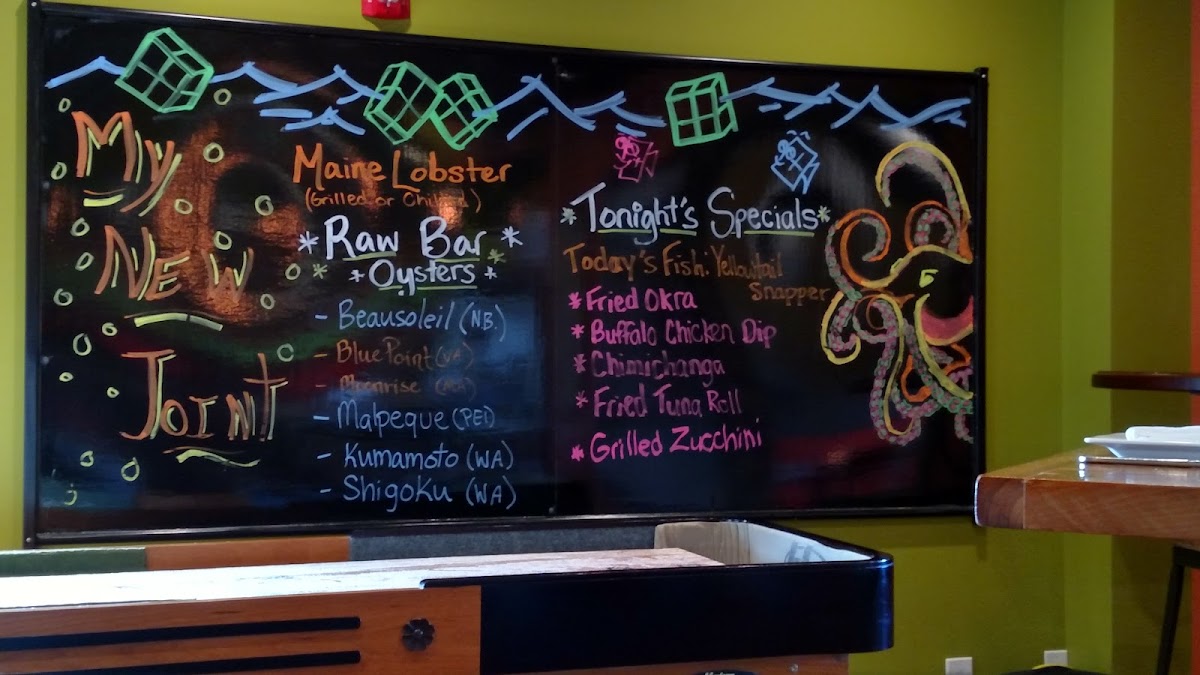 My
New
Joint
Maine Lobster
(Grilled or Chilled)
* Raw Bar *
* Oysters *
- Beausoleil (NB.)
- Blue Point (VA)
- Moonrise
- Malpeque (PEI)
- Kumamoto (WA)
- Shigoku (WA)
*Tonight's Specials*
Today's Fish: Yellowtail
Snapper
* Fried Okra
* Buffalo Chicken Dip
* Chimichanga
* Fried Tuna Roll
* Grilled Zucchini